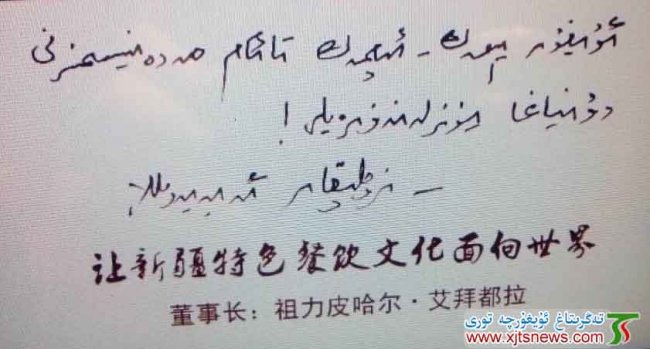 ئۇيغۇر يېمەك - ئىچمەك تائام مەدەنىيىتىمىزنى
دۇنياغا يۈزلەندۈرەيلى!
— زۇلپىقار ئابابەيدۇللا
让新疆特色餐饮文化面向世界
董事长：祖力皮哈尔·艾拜都拉
تەڭرىتاغ ئۇيغۇرچە تورى
www.xjtsnews.com